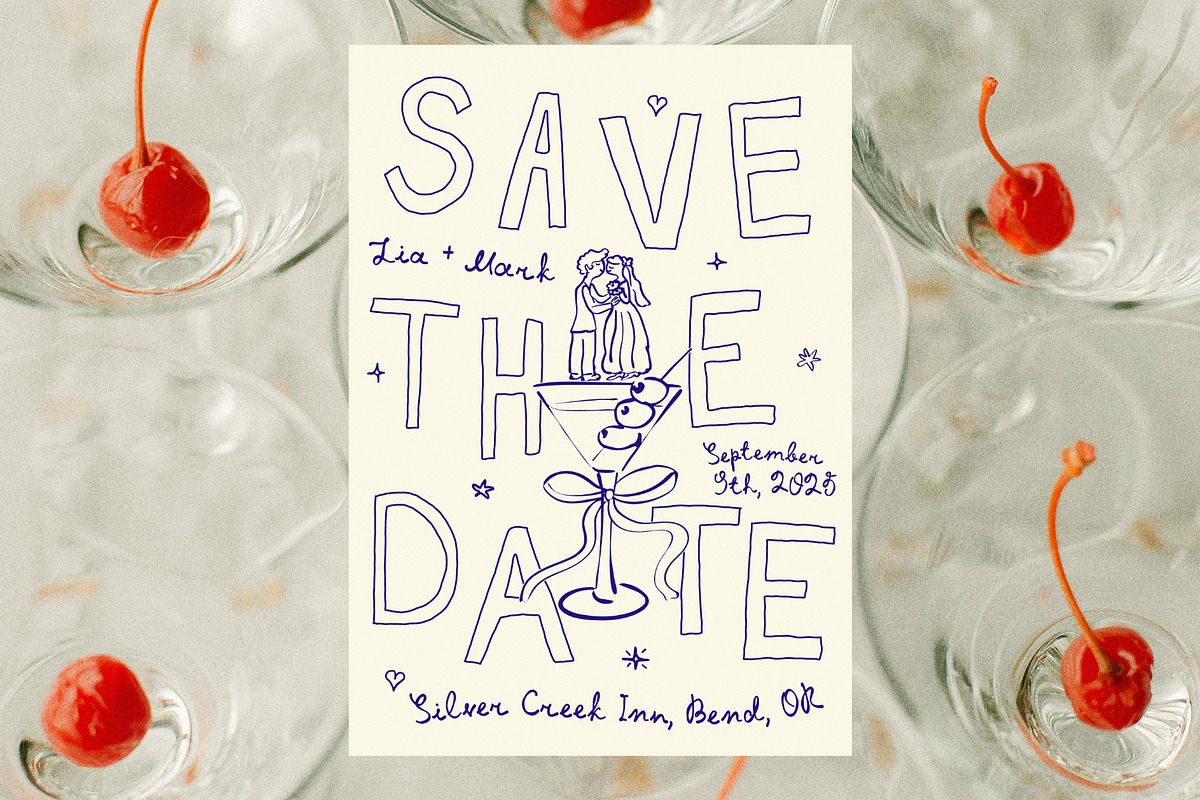 SAVE
Lia + Mark
THE
September
9th, 2025
DATE
Silver Creek Inn, Bend, OR